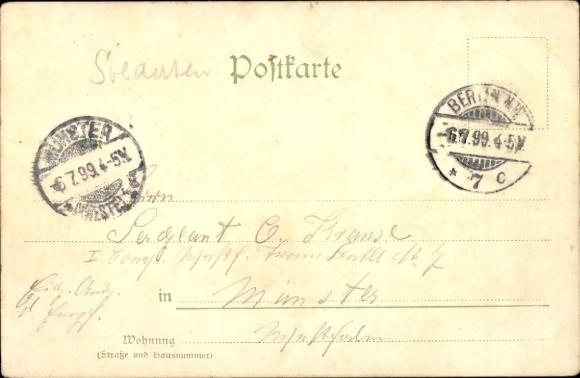 Postkarte
BERLIN N.W.
6.7.99.4-5N.
* 7 c
MÜNSTER
6.7.99.4-5N.
Herrn
Sergeant C. Krause
I Comp. Westf. Train Batll No. 7
in Münster
Westfalen
Wohnung
(Straße und Hausnummer)